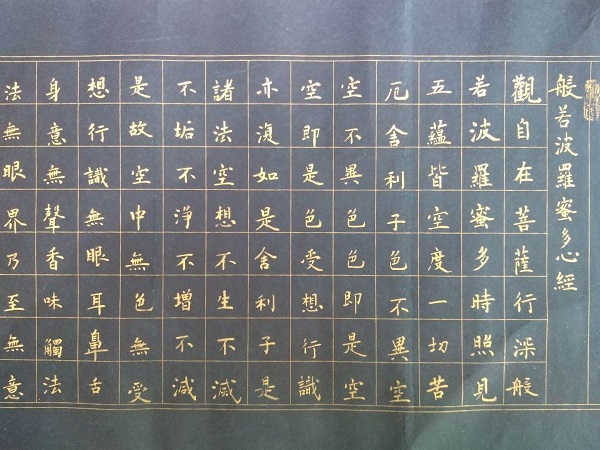 般若波羅蜜多心經
觀自在菩薩行深般
若波羅蜜多時照見
五蘊皆空度一切苦
厄舍利子色不異空
空不異色色即是空
空即是色受想行識
亦復如是舍利子是
諸法空想不生不滅
不垢不淨不增不減
是故空中無色無受
想行識無眼耳鼻舌
身意無聲香味觸法
法無眼界乃至無意